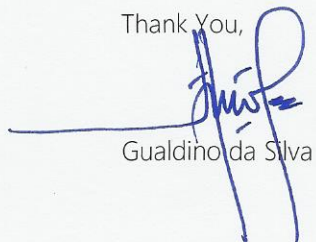 Thank You,
Gualdino da Silva